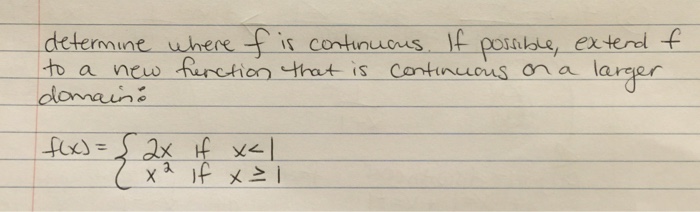 determine where f is continuous. If possible, extend f
to a new function that is continuous on a larger
domain:
f(x) = { 2x if x<1
x² if x ≥ 1